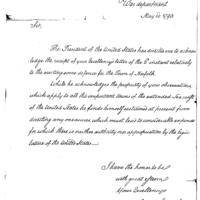 War department
May 1790
Sir,
The President of the United States has directed me to acknow-
ledge the receipt of your Excellency's letter of the 8th instant relatively
to the erecting some defence for the Town of Norfolk.
While he acknowledges the propriety of your observations
which apply to all the important towns of the extended Sea coast
of the United States he finds himself restrained at present from
directing any measures which must lead to considerable expence
for which there is neither authority nor appropriation by the legis-
lature of the United States.
I have the honor to be
with great esteem
Your Excellency's